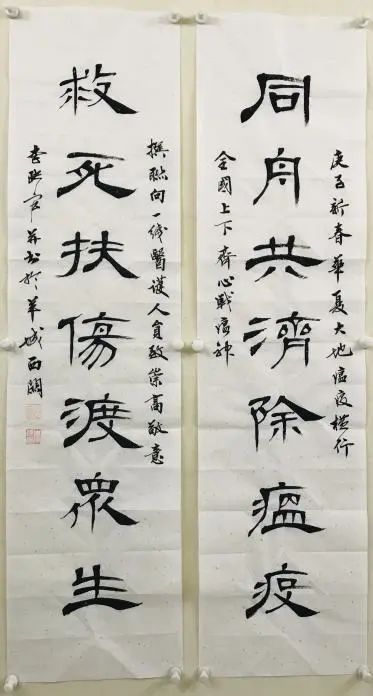 庚子新春華夏大地瘟疫橫行
同舟共濟除瘟疫
全國上下齊心戰瘟神
撰聯向一线醫護人員致崇高敬意
救死扶傷渡眾生
并书於羊城西關